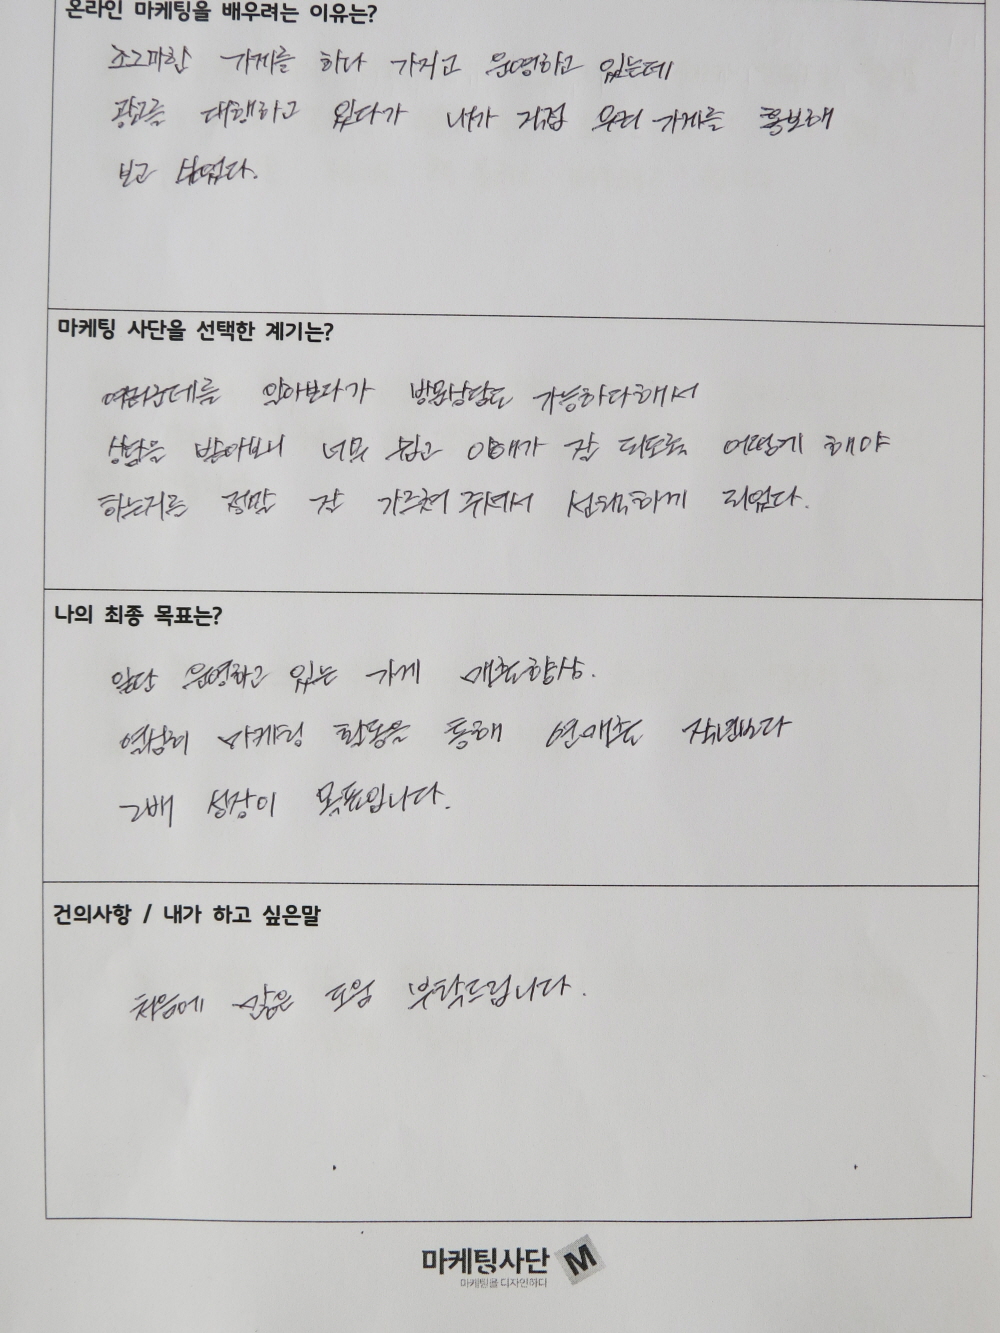 온라인 마케팅을 배우려는 이유는?
조그마한 가게를 하나 가지고 운영하고 있는데
광고를 대행하고 있다가 내가 직접 우리 가게를 홍보해
보고 싶었다.
마케팅 사단을 선택한 계기는?
여러군데를 알아보다가 방문상담도 가능하다해서
상담을 받아보니 너무 쉽고 이해가 잘 되도록 어떻게 해야
하는지를 정말 잘 가르쳐 주셔서 선택하게 되었다.
나의 최종 목표는?
일단 운영하고 있는 가게 매출향상.
열심히 마케팅 활동을 통해 연매출 작년보다
2배 성장이 목표입니다.
건의사항 / 내가 하고 싶은말
처음에 많은 도움 부탁드립니다.
마케팅사단 M
마케팅을 디자인하다